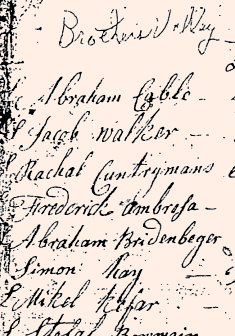 Brothers V. Wey
Abraham Cable -
Jacob walker -
Rachal Cuntrymans
Frederick Ambrosa -
Abraham Bridenbeger
Simon hay -
Mikel Kefar -